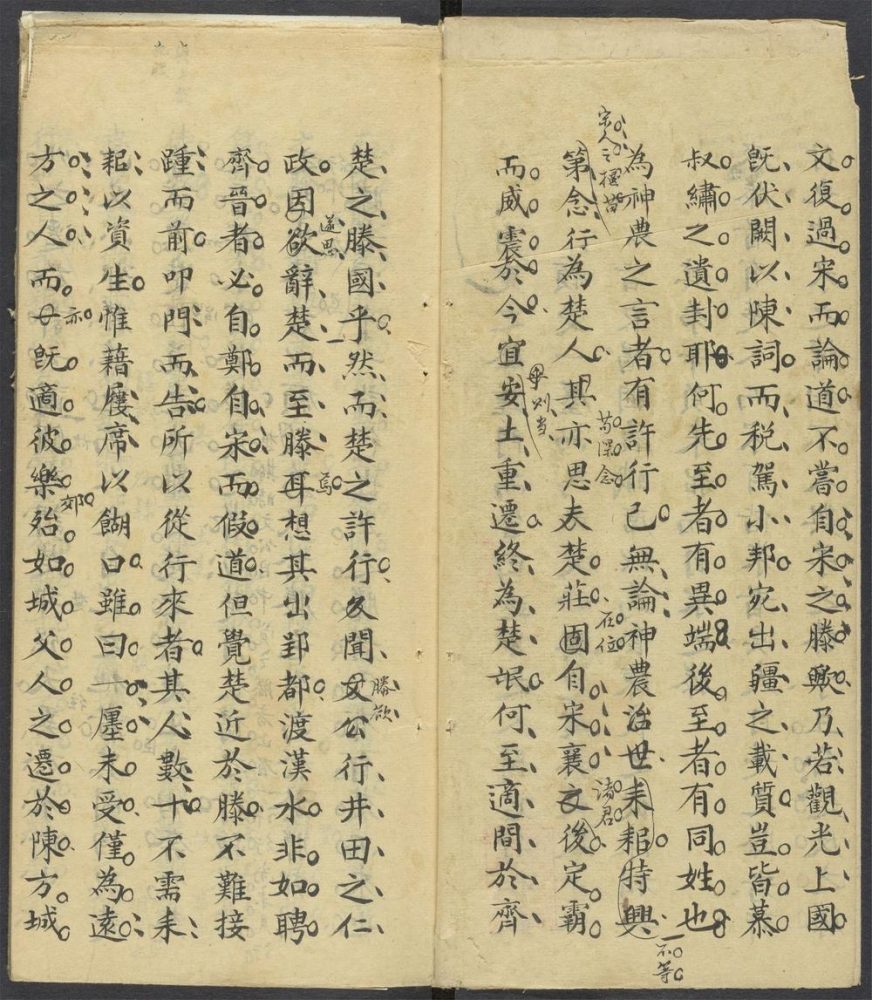 文復過宋而論道不嘗自宋之滕歟乃若觀光上國
既伏闕以陳詞而稅駕小邦宛出疆之載質豈皆慕
叔繡之遺封耶何先至者有異端後至者有同姓也
為神農之言者有許行已無論神農治世耒耜特興
宋人之
苟深念
不等
第念行為楚人其亦思夫楚莊固自宋襄之後定霸
在位
諸君
而威震於今宜安土重遷終為楚氓何至適間於齊
楚之滕國乎然而楚之許行久聞文公行井田之仁
滕欲
政因欲辭楚而至滕耳想其出郢都渡漢水非如聘
遂思
焉
齊晉者必自鄭自宋而假道但覺楚近於滕不難接
踵而前叩門而告所以從行來者其人數十不需耒
耜以資生惟藉屨席以餬口雖曰一廛未受僅為遠
方之人而毋既適彼樂殆如城父人之遷於陳方城
亦
郊